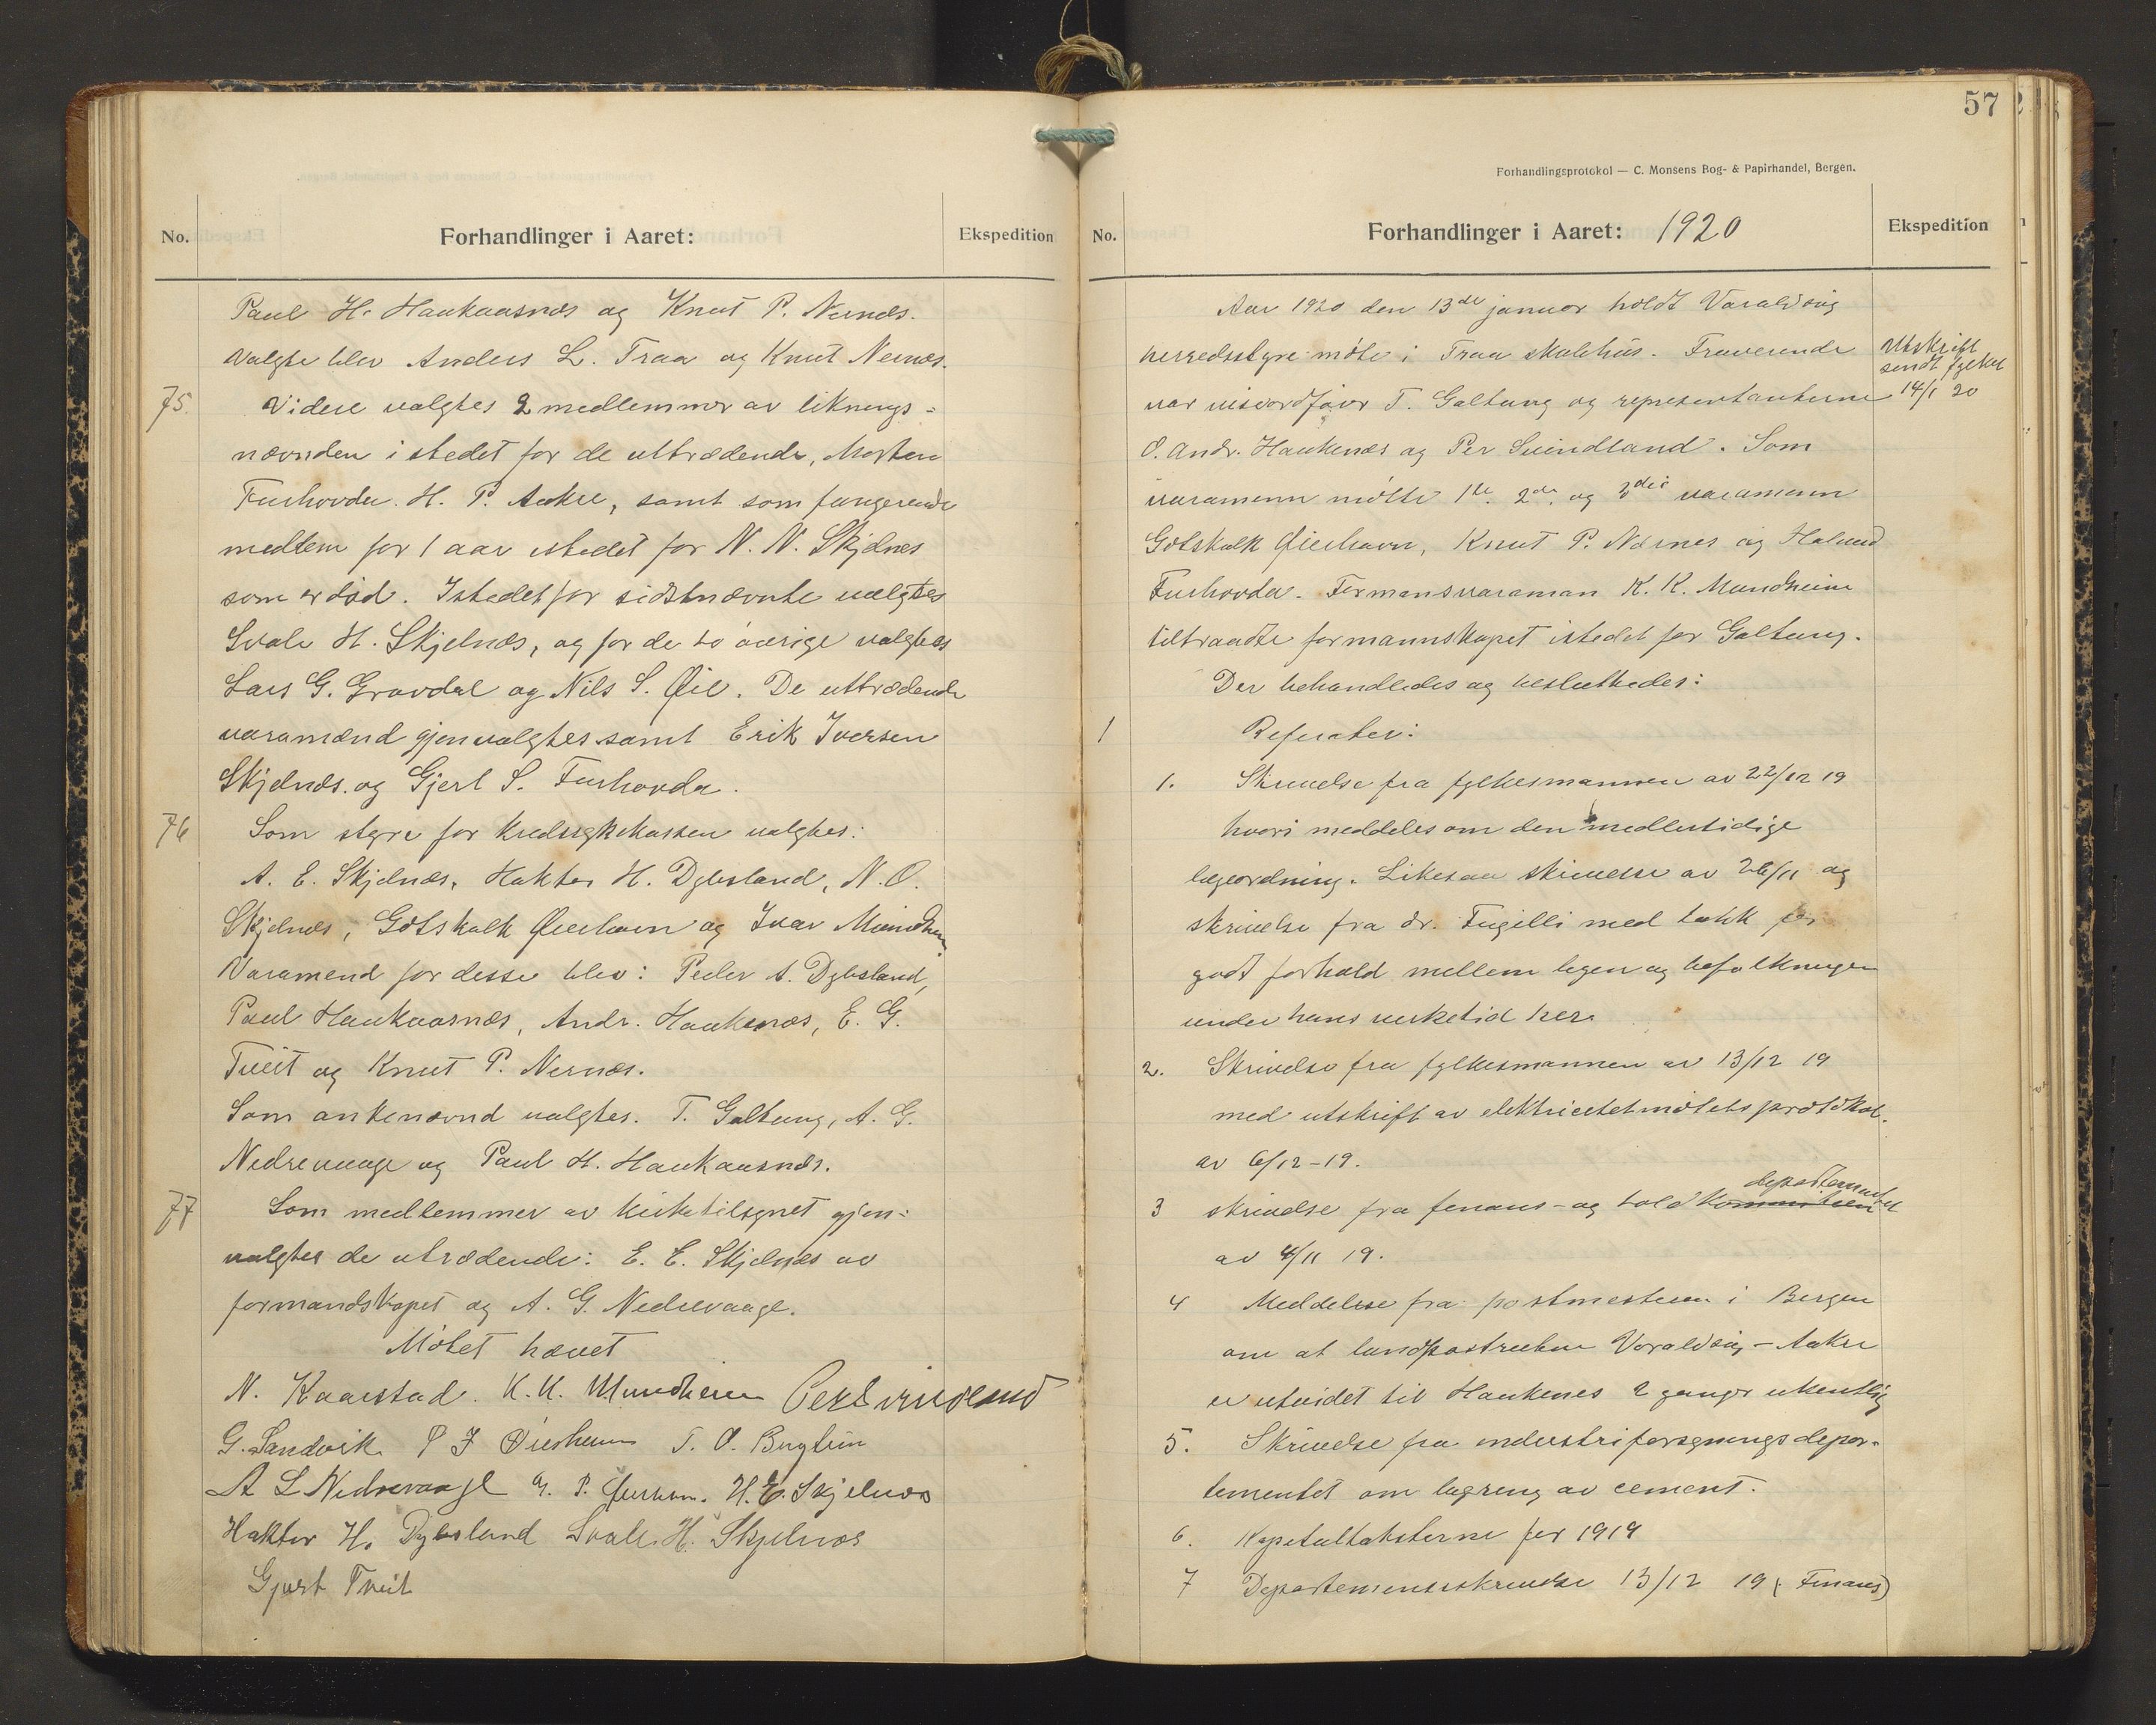 No.
Forhandlinger i Aaret:
Ekspedition
Paul H. Haukaasnæs og Knut P. Nernæs.
Valgte blev Anders L. Traa og Knut Nernæs.
75. Videre valgtes 2 medlemmer av liknings-
nævnden istedet for de uttrædende, Morten
Furhovda. H. P. Aakre, samt som fungerende
medlem for 1 aar istedet for N. N. Skjelnes
som er død. Istedet for sidstnævnte valgtes
Svale H. Skjelnæs, og for de to øvrige valgtes
Lars G. Gravdal og Nils S. Øie. De uttrædende
varamænd gjenvalgtes samt Erik Iversen
Skjelnæs. og Gjert S. Furhovda.
76 Som styre for Kredssykekassen valgtes:
A. E. Skjelnæs, Haktor H. Dybsland, N. O.
Skjelnæs, Gotskalk Øierhavn og Ivar Mundheim
Varamend for desse blev: Peder A. Dybsland,
Paul Haukaasnæs, Andr. Haukenæs, E. G.
Tveit og Knut P. Nernæs.
Som ankenævnd valgtes. T. Galtung, A. G.
Nedrevaage og Paul H. Haukaasnæs.
77 Som medlemmer av kirketilsynet gjen-
valgtes de utrædende: E. E. Skjelnæs av
formandskapet og A. G. Nedrevaage.
Møtet hævet
N. Kaarstad. K. K. Mundheim Per Svindland
G. Sandvik P J Øierhavn T. O.
A L Nedrevaage G. P. Øierhavn. H. E. Skjelnæs
Haktor H. Dybsland Svale H. Skjelnæs
Gjert Tveit
57
Forhandlingsprotokol — C. Monsens Bog- & Papirhandel, Bergen.
No.
Forhandlinger i Aaret: 1920
Ekspedition
Aar 1920 den 13de januar holdt Varaldsøy
herredsstyre møte i Traa skulehus. Fraverende
var viseordfører T. Galtung og representanterne
O. Andr. Haukenæs og Per Svindland. Som
varamenn møtte 1te. 2den. og 3die varamenn
Gotskalk Øierhavn, Knut P. Nernes og Halvard
Furhovda. Formansvaraman K. K. Mundheim
tiltraadte formannskapet istedet for Galtung.
Utskrift
sendt fylket
14/1 20
Der behandledes og besluttedes:
1 Referater:
1. Skrivelse fra fylkesmannen av 22/12 19
hvori meddeles om den midlertidige
lægeordning. Likesaa skrivelse av 26/11 og
skrivelse fra dr. Fugelli med takk for
godt forhold mellem legen og befolkningen
under hans virketid her.
2. Skrivelse fra fylkesmannen av 13/12 19
med utskrift av elektricitetmøtets protokol.
av 6/12-19.
3 skrivelse fra finans- og told kommiteen departementet
av 4/11 19.
4 Meddelese fra postmesteren i Bergen
om at landpostruten Varaldsøy - Aakre
er utvidet til Haukenes 2 ganger ukentlig
5. Skrivelse fra industriforsyningsdepar-
tementet om lagring av cement.
6. Kapitaltaksterne for 1919
7 Departementsskrivelse 13/12 19 (Finans)